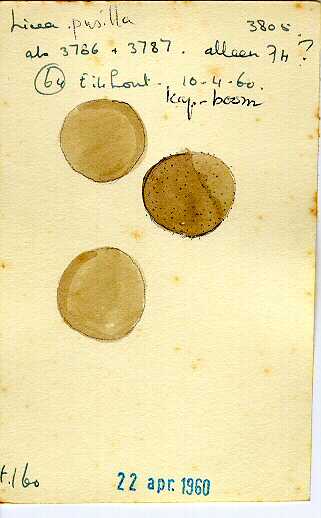 Licea pusilla 3805.
als 3766 + 3787. alleen 7h?
64 Eikhout. 10-4-60.
Kap-boom
22 apr. 1960